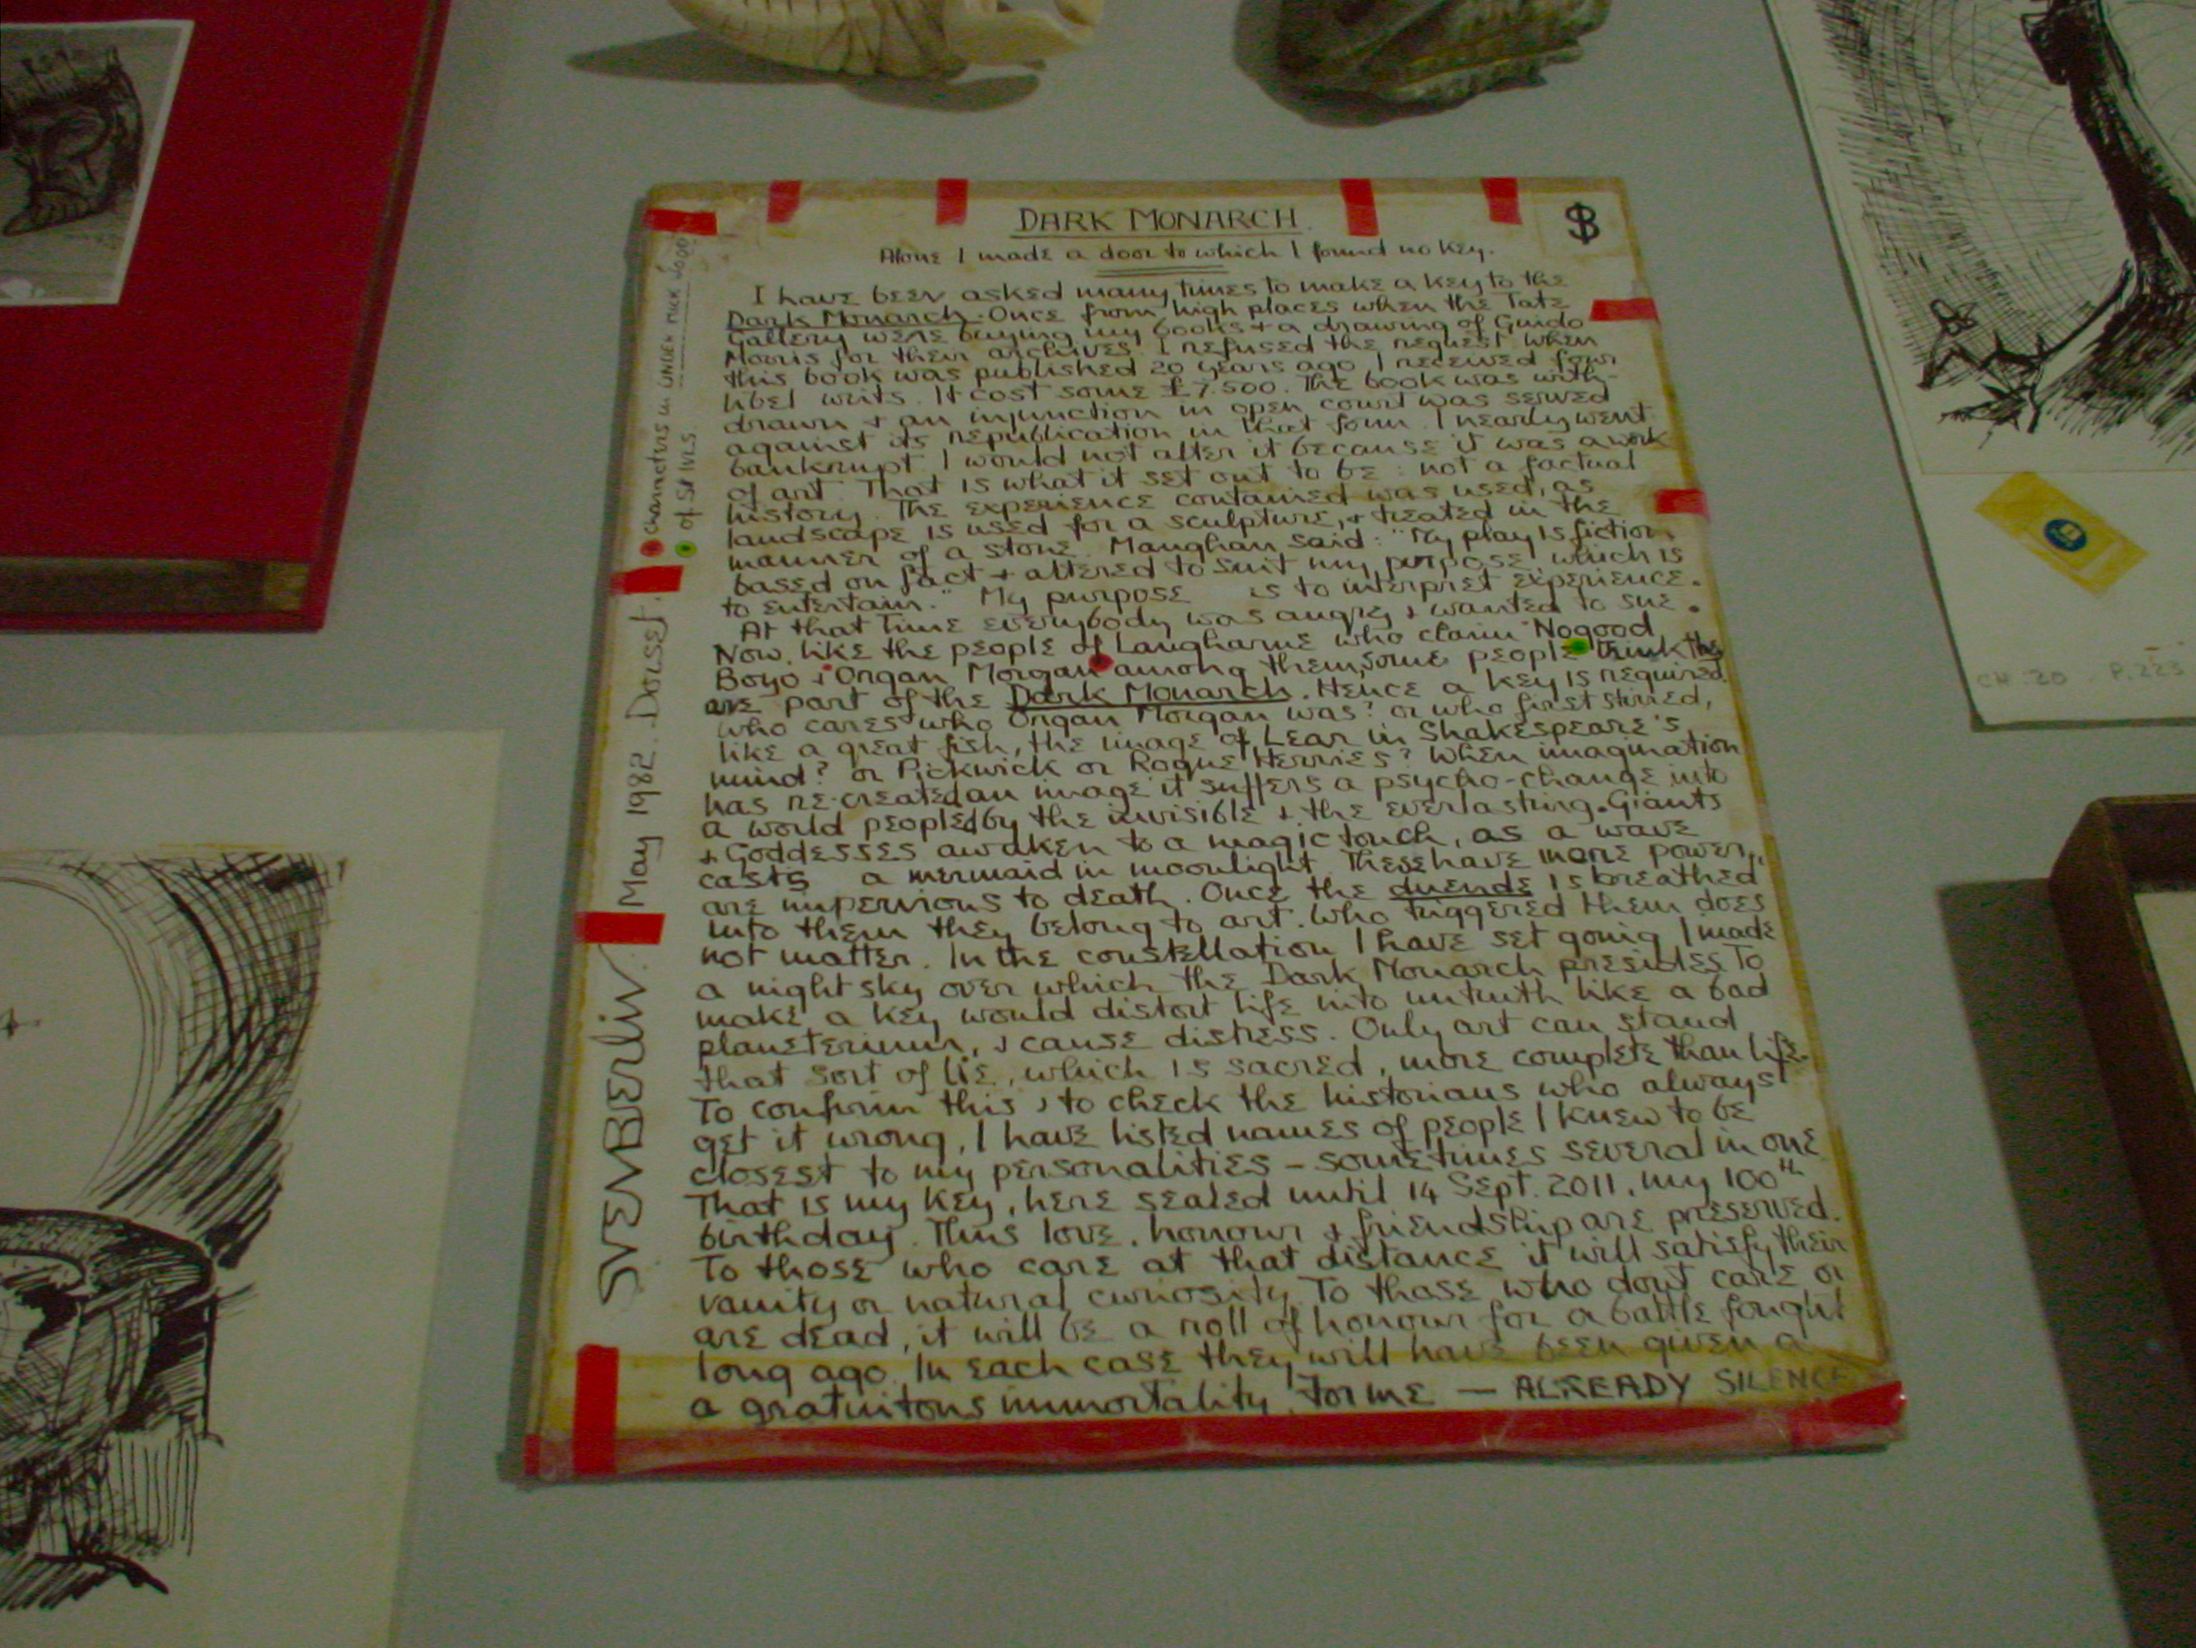 DARK MONARCH.
Alone I made a door to which I found no key.
I have been asked many times to make a key to the
Dark Monarch. Once from high places when the Tate
Gallery were buying my books + a drawing of Guido
Morris for their archives. I refused the request. When
this book was published 20 years ago I received four
libel writs. It cost some £7.500. The book was with-
drawn + an injunction in open court was served
against its republication in that form. I nearly went
bankrupt. I would not alter it because it was a work
of art. That is what it set out to be: not a factual
history. The experience contained was used, as
landscape is used for a sculpture, + treated in the
manner of a stone. Maugham said: "My play is fiction
based on fact + altered to suit my purpose, which is
to entertain." My purpose is to interpret experience.
At that time everybody was angry + wanted to sue.
Now, like the people of Laugharne who claim Nogood
Boyo + Organ Morgan among them, some people think they
are part of the Dark Monarch. Hence a key is required.
Who cares who Organ Morgan was? or who first stirred,
like a great fish, the image of Lear in Shakespeare's
mind? or Pickwick or Rogue Herries? When imagination
has re-created an image it suffers a psycho-change into
a world peopled by the invisible + the everlasting. Giants
+ Goddesses awaken to a magic touch, as a wave
casts a mermaid in moonlight. These have more power,
are impervious to death. Once the duende is breathed
into them they belong to art. Who triggered them does
not matter. In the constellation I have set going I made
a night sky over which the Dark Monarch presides. To
make a key would distort life into untruth like a bad
planeterium, + cause distress. Only art can stand
that sort of lie, which is sacred, more complete than life.
To confirm this, + to check the historians who always
get it wrong, I have listed names of people I knew to be
closest to my personalities – sometimes several in one.
That is my key, here sealed until 14 Sept. 2011, my 100th
birthday. Thus love, honour + friendship are preserved.
To those who care at that distance it will satisfy their
vanity or natural curiosity. To those who don't care or
are dead, it will be a roll of honour for a battle fought
long ago. In each case they will have been given a
a gratuitous immortality. For me — ALREADY SILENCE
SVEN BERLIN. May 1982. Dorset.
characters in UNDER MILK WOOD
of St Ives.
CH. 20 P. 223